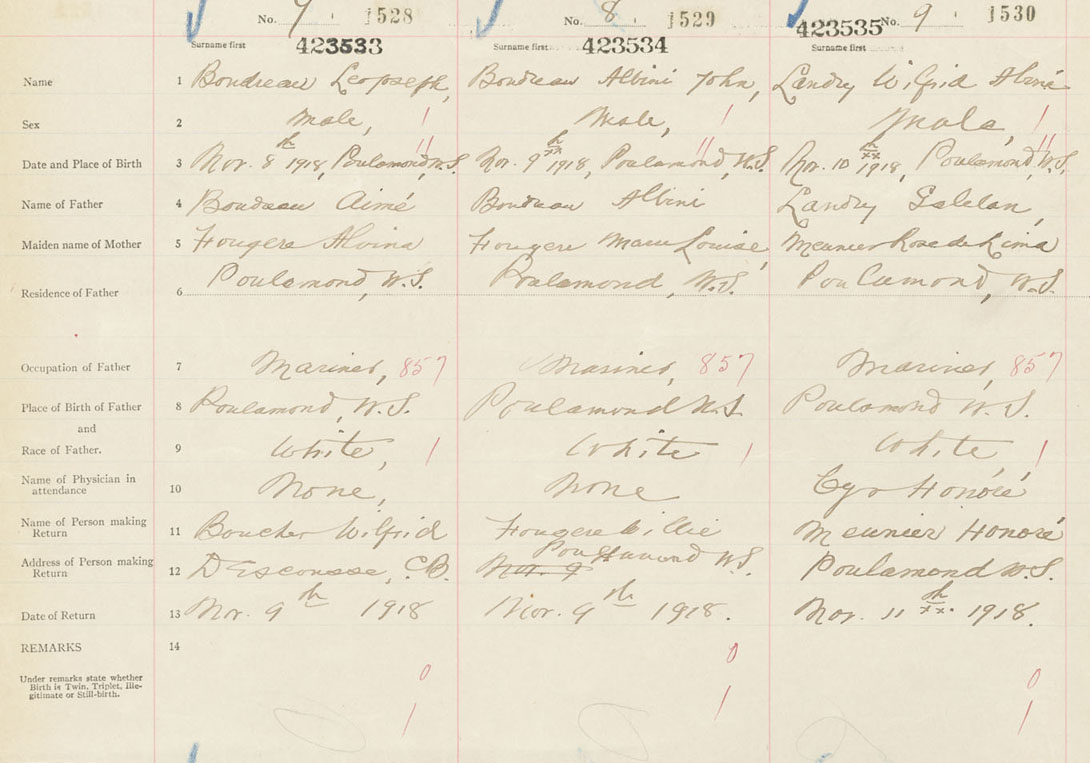 No. 7 1528 No. 8 1529 423535 No. 9 1530
Surname first 423533 Surname first 423534 Surname first
Name 1 Boudreau Leo Joseph, Boudreau Albini John, Landry Wilfrid Albini
Sex 2 Male, 1 Male, 1 Male, 1
Date and Place of Birth 3 Nov. 8th 1918, Poulamond, W.S. 11 Nov. 9th 1918, Poulamond, W.S. 11 Nov. 10th 1918, Poulamond, W.S. 11
Name of Father 4 Boudreau Aimé Boudreau Albini Landry Galelan,
Maiden name of Mother 5 Fougere Alvina Fougere Marie Louise, Meunier Rose de Lima
Residence of Father 6 Poulamond, W.S. Poulamond, W.S. Poulamond, W.S.
Occupation of Father 7 Mariner, 857 Mariner, 857 Mariner, 857
Place of Birth of Father 8 Poulamond, W.S. Poulamond W.S. Poulamond W.S.
and
Race of Father. 9 White, 1 White 1 White, 1
Name of Physician in
attendance 10 None, None Cyr Honoré
Name of Person making
Return 11 Boucher Wilfrid Fougere Willie Meunier Honoré
Address of Person making
Return 12 D'Escousse, C.B. Nov. 9 Poulamond W.S. Poulamond W.S.
Date of Return 13 Nov. 9th 1918 Nov. 9th 1918. Nov. 11th 1918.
REMARKS 14
Under remarks state whether
Birth is Twin, Triplet, Ille-
gitimate or Still-birth.
0 0 0
1 1 1